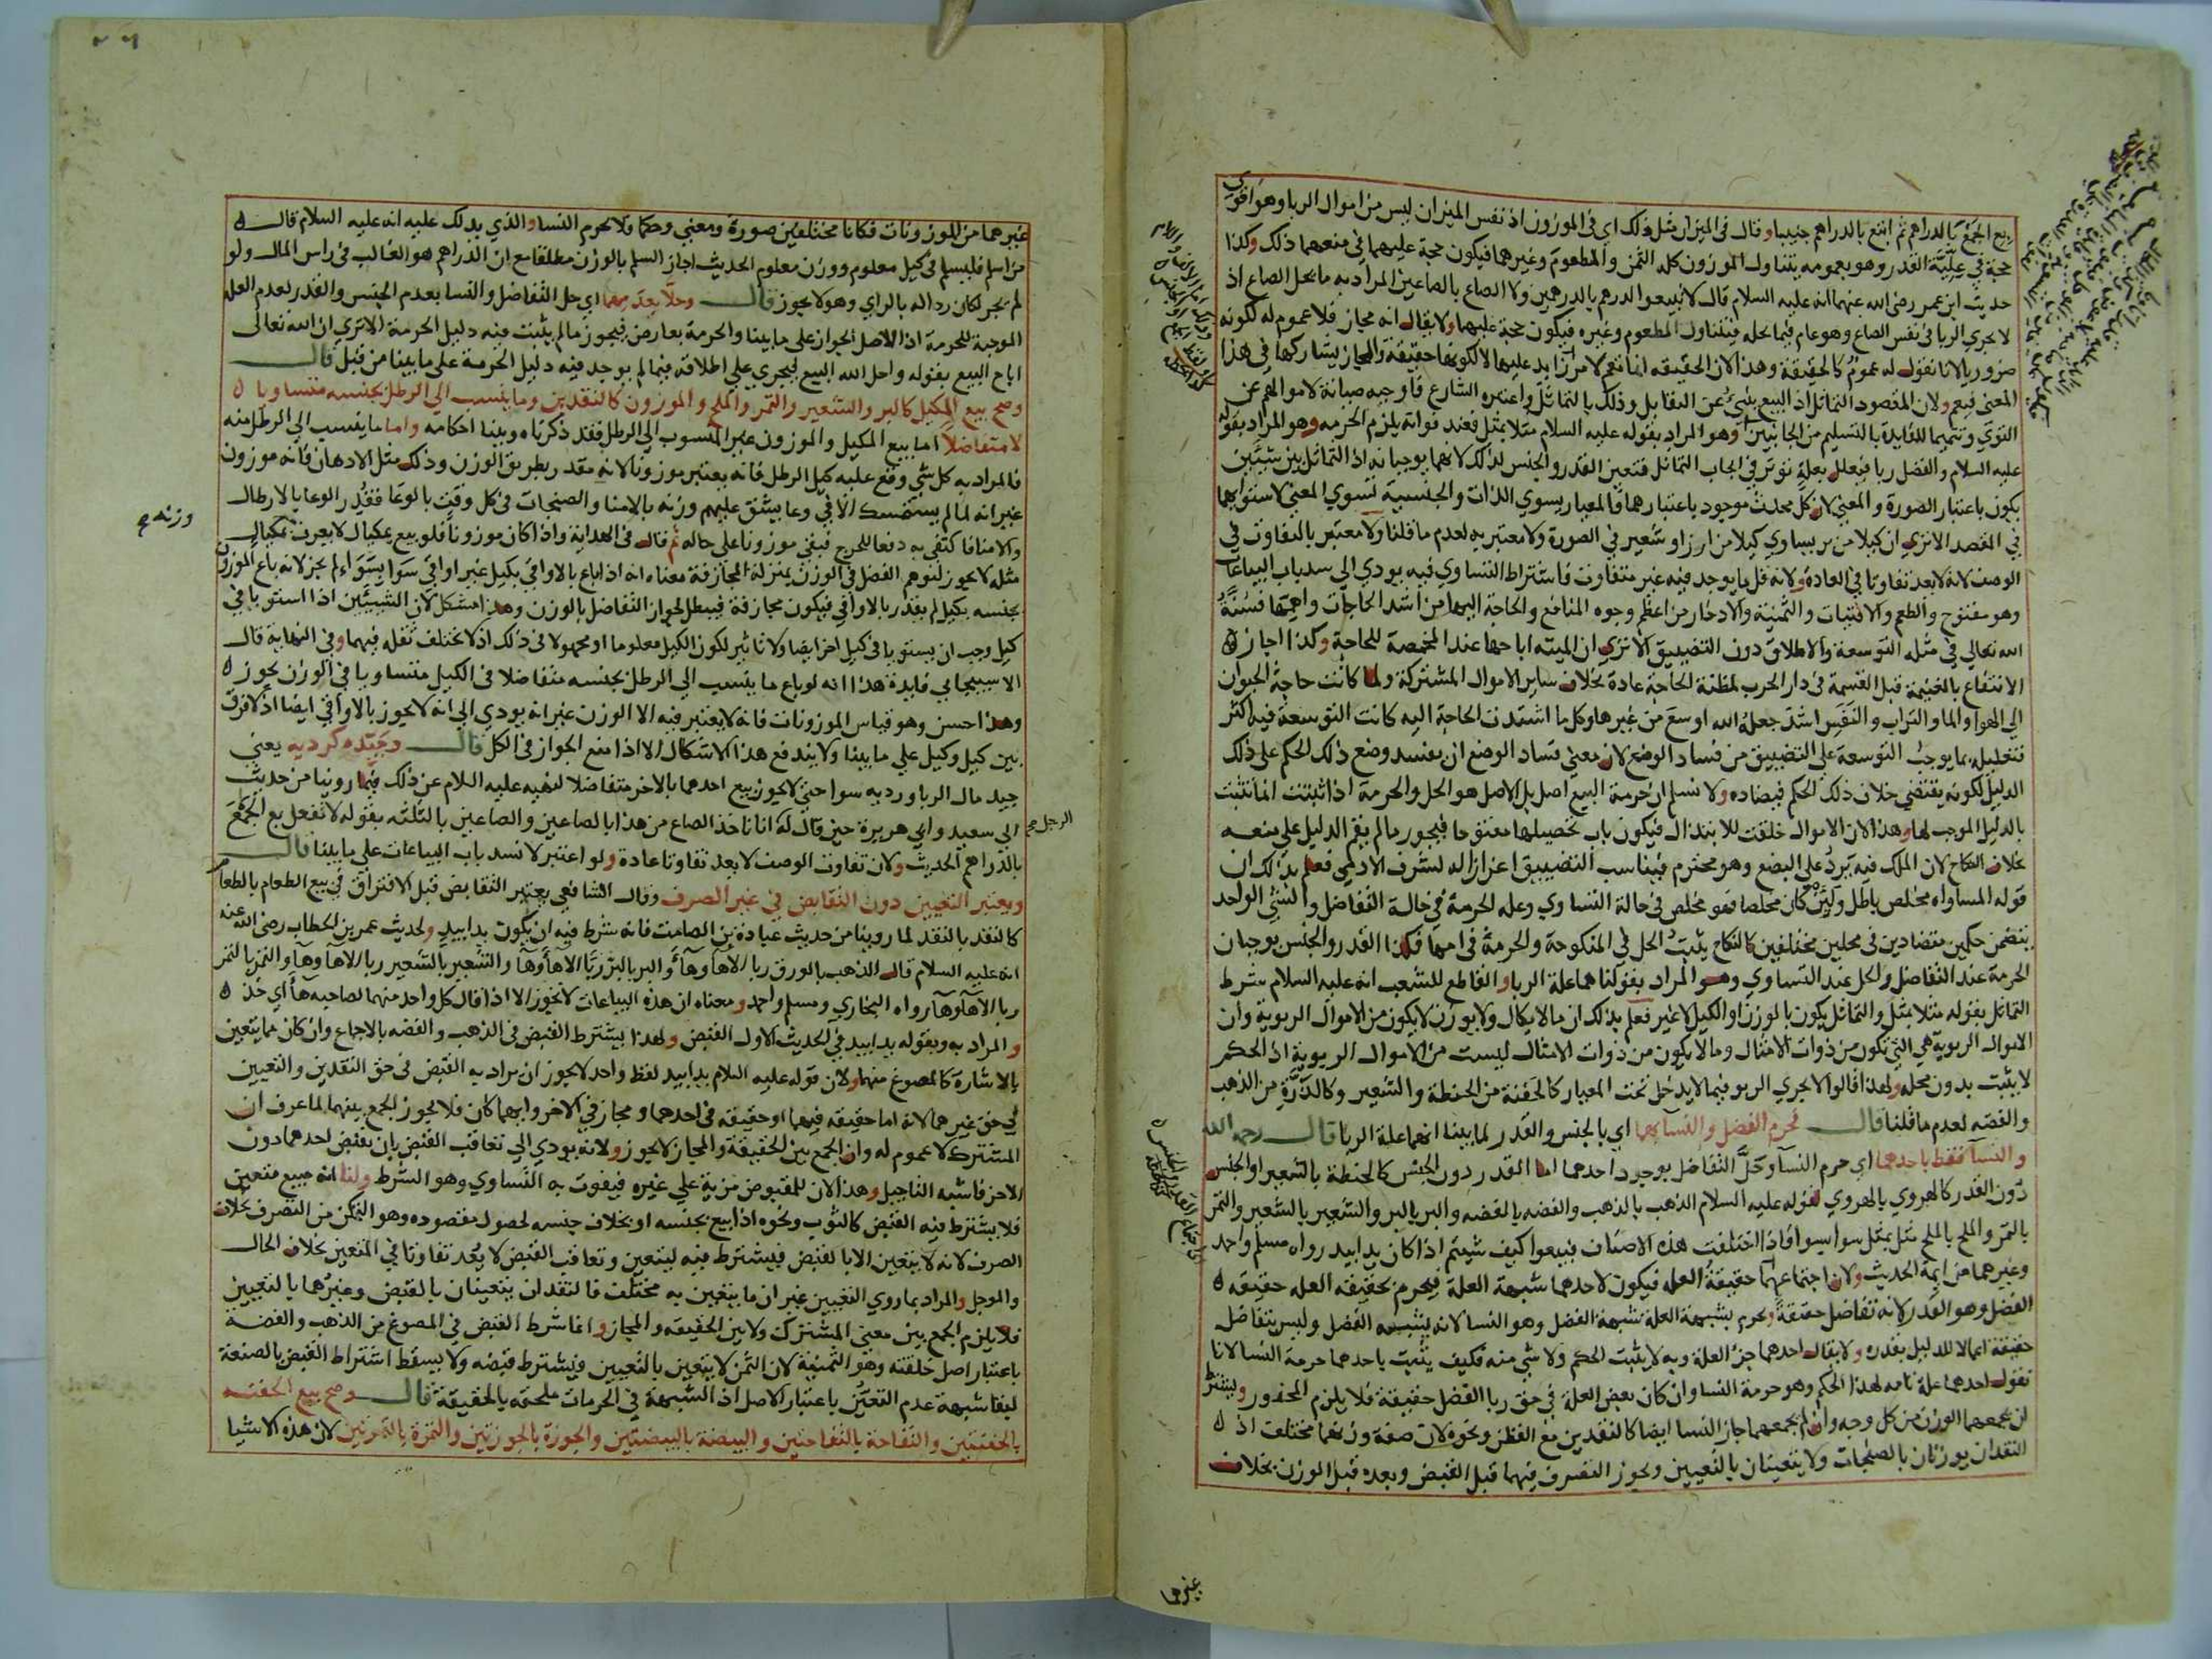 بع الجمع بالدراهم ثم ابتع بالدراهم جنيبا وقال في الميزان مثل ذلك اي في الموزون اذ نفس الميزان ليس من اموال الربا وهو اقوى
حجة في علية القدر وهو بعمومه يتناول الموزون كله الثمن والمطعوم وغيرهما فيكون حجة عليهما في منعهما ذلك وكذا
حديث ابن عمر رضي الله عنهما انه عليه السلام قال لا تبيعوا الدرهم بالدرهمين ولا الصاع بالصاعين المراد به ما يحل الصاع اذ
لا يجري الربا في نفس الصاع وهو عام فيما يحله فيتناول المطعوم وغيره فيكون حجة عليهما ولا يقال انه مجاز فلا عموم له لكونه
ضروريا لانا نقول له عموم كالحقيقة وهذا لان الحقيقه انما تعم لامر زايد عليها لا لكونها حقيقة والمجاز يشاركها في هذا
المعنى فيعم ولان المقصود التماثل اذ البيع ينبئ عن التقابل وذلك بالتماثل واعتبره الشارع فاوجبه صيانة لاموالهم عن
التوى وتتميما للفايدة بالتسليم من الجانبين وهو المراد بقوله عليه السلام مثلا بمثل فعند فواته يلزم الحرمه وهو المراد بقوله
عليه السلام والفضل ربا فيعلل بعلة توثر في ايجاب التماثل فتعين القدر والجنس لذلك لانهما يوجبانه اذ التماثل بين شيئين
يكون باعتبار الصورة والمعنى لان كل محدث موجود باعتبارهما فالمعيار يسوي الذات والجنسية تسوي المعنى لاستوايهما
في القصد الا ترى ان كيلا من بر يساوي كيلا من ارز او شعير في الصورة ولا معتبر به لعدم ما قلنا ولا معتبر بالتفاوت في
الوصف لانه لا يعد تفاوتا في العادة ولانه قل ما يوجد فيه غير متفاوت فاشتراط التساوي فيه يودي الى سد باب البياعات
وهو مفتوح والطعم والاقتيات والثمنية والادخار من اعظم وجوه المنافع والحاجة اليها من اشد الحاجات واهمها فسنة
الله تعالى في مثله التوسعة والاطلاق دون التضييق الا ترى ان الميته اباحها عند المخمصة للحاجة وكذا اجاز
الانتفاع بالغنيمة قبل القسمة في دار الحرب لمظنة الحاجة عادة بخلاف ساير الاموال المشتركة ولما كانت حاجة الحيوان
الى الهوا والما والتراب والنفس اشد جعله الله اوسع من غيرها وكل ما اشتدت الحاجة اليه كانت التوسعة فيه اكثر
فتعليله بما يوجب التوسعة على التضييق من فساد الوضع لان معنى فساد الوضع ان يفسد وضع ذلك الحكم على ذلك
الدليل لكونه يقتضي خلاف ذلك الحكم فيضاده ولا نسلم ان حرمة البيع اصل بل الاصل هو الحل والحرمة اذا ثبتت انما تثبت
بالدليل الموجب لها وهذا لان الاموال خلقت للابتذال فيكون باب تحصيلها مفتوحا فيجوز مالم يقم الدليل على منعه
بخلاف النكاح لان الملك فيه يرد على البضع وهو محترم فيناسب التضييق اعزازا له لشرف الادمي فعلم بذلك ان
قوله المساواه مخلص باطل ولئن كان مخلصا فهو مخلص في حالة التساوي وعله الحرمة في حالة التفاضل والشي الواحد
يتضمن حكمين متضادين في محلين مختلفين كالنكاح يثبت الحل في المنكوحة والحرمة في امها فكذا القدر والجنس يوجبان
الحرمة عند التفاضل والحل عند التساوي وهو المراد بقولنا هما علة الربا والقاطع للشعب انه عليه السلام شرط
التماثل بقوله مثلا بمثل والتماثل يكون بالوزن او الكيل لا غير فعلم بذلك ان مالا يكال ولا يوزن لا يكون من الاموال الربوية وان
الاموال الربوية هي التي تكون من ذوات الامثال وما لا يكون من ذوات الامثال ليست من الاموال الربوية اذ الحكم
لا يثبت بدون محله ولهذا قالوا لا يجري الربو فيما لا يدخل تحت المعيار كالحفنة من الحنطة والشعير وكالذرة من الذهب
والفضه لعدم ما قلنا قال رحمه الله فحرم الفضل والنسا بهما اي بالجنس والقدر لما بينا انهما علة الربا قال رحمه الله
والنسآ فقط باحدهما اي حرم النسآ وحل التفاضل بوجود احدهما اما القدر دون الجنس كالحنطة بالشعير او الجنس
دون القدر كالهروي بالهروي لقوله عليه السلام الذهب بالذهب والفضه بالفضه والبر بالبر والشعير بالشعير والتمر
بالتمر والملح بالملح مثل بمثل سوا بسوا فاذا اختلفت هذه الاصناف فبيعوا كيف شيتم اذا كان يدا بيد رواه مسلم واحمد
وغيرهما من ايمة الحديث ولان اجتماعهما حقيقة العله فيكون لاحدهما شبهة العلة فيحرم بحقيقه العله حقيقه
الفضل وهو القدر لانه تفاضل حقيقة ويحرم بشبهة العلة شبهة الفضل وهو النسا لانه يشبه الفضل وليس بتفاضل
حقيقة اعمالا للدليل بقدره ولا يقال احدهما جز العلة وبه لا يثبت الحكم ولا شي منه فكيف يثبت باحدهما حرمة النسا لانا
نقول احدهما علة تامه لهذا الحكم وهو حرمة النسا وان كان بعض العلة في حق ربا الفضل حقيقة فلا يلزم المحذور ويشترط
ان يجمعهما الوزن من كل وجه وان لم يجمعهما جاز النسا ايضا كالنقدين مع القطن ونحوه لان صفة وزنهما مختلف اذ
النقدان يوزنان بالصنجات ولا يتعينان بالتعيين ويجوز التصرف فيهما قبل القبض وبعده قبل الوزن بخلاف
غيرهما
غيرهما من الموزونات فكانا مختلفين صورة ومعنى وحكما فلا يحرم النسا والذي يدلك عليه انه عليه السلام قال
من اسلم فليسلم في كيل معلوم ووزن معلوم الحديث اجاز السلم بالوزن مطلقا مع ان الدراهم هو الغالب في راس المال ولو
لم يجز لكان رد اله بالراي وهو لا يجوز قال وحلا بعدمهما اي حل التفاضل والنسا بعدم الجنس والقدر لعدم العلة
الموجبة للحرمة اذ الاصل الجواز على ما بينا والحرمة بعارض فيجوز مالم يثبت فيه دليل الحرمة الا ترى ان الله تعالى
اباح البيع بقوله واحل الله البيع فيجري على اطلاقه فيما لم يوجد فيه دليل الحرمة على ما بينا من قبل قال
وصح بيع المكيل كالبر والشعير والتمر والملح والموزون كالنقدين وما ينسب الى الرطل بجنسه متساويا
لا متفاضلا اما بيع المكيل والموزون غير المنسوب الى الرطل فقد ذكرناه وبينا احكامه واما ما ينسب الى الرطل منه
فالمراد به كل شي وقع عليه كيل الرطل فانه يعتبر موزونا لانه مقدر بطريق الوزن وذلك مثل الادهان فانه موزون
غير انه لما لم يستمسك الا في وعا يشق عليهم وزنه بالامنا والصنجات في كل وقت بالوعا فقدر الوعا بالارطال
والامنا فاكتفي به دفعا للحرج فبقي موزونا على حاله ثم قال في الهداية واذا كان موزونا فلو بيع بمكيال لا يعرف بمكيال
مثله لا يجوز لتوهم الفضل في الوزن بمنزلة المجازفة معناه انه اذا باع بالاواقي بكيل غير اواقي سوا بسواء لم يجز لانه باع الموزون
بجنسه بكيل لم يقدر بالاواقي فيكون مجازفة فيبطل لجواز التفاضل بالوزن وهذا مشكل لان الشيئين اذا استويا في
كيل وجب ان يستويا في كيل اخر ايضا ولا تاثير لكون الكيل معلوما او مجهولا في ذلك اذ لا يختلف ثقله فيهما وفي النهاية قال
الاسبيجابي فايدة هذا انه لو باع ما ينسب الى الرطل بجنسه متفاضلا في الكيل متساويا في الوزن يجوز
وهذا احسن وهو قياس الموزونات فانه لا يعتبر فيه الا الوزن غير انه يودي الى انه لا يجوز بالاواقي ايضا اذ لا فرق
بين كيل وكيل على ما بينا ولا يندفع هذا الاشكال الا اذا منع الجواز في الكل قال وجيده كرديه يعني
جيد مال الربا ورديه سوا حتى لا يجوز بيع احدهما بالاخر متفاضلا لنهيه عليه السلام عن ذلك فيما روينا من حديث
ابي سعيد وابي هريرة حين قال له انا ناخذ الصاع من هذا بالصاعين والصاعين بالثلثه بقوله لا تفعل بع الجمع
بالدراهم الحديث ولان تفاوت الوصف لا يعد تفاوتا عادة ولو اعتبر لانسد باب البياعات على ما بينا قال
ويعتبر التعيين دون التقابض في غير الصرف وقال الشافعي يعتبر التقابض قبل الافتراق في بيع الطعام بالطعام
كالنقد بالنقد لما روينا من حديث عبادة بن الصامت فانه شرط فيه ان يكون يدا بيد ولحديث عمر بن الخطاب رضي الله عنه
انه عليه السلام قال الذهب بالورق ربا الا هآ وهآ والبر بالبر ربا الا هآ وهآ والشعير بالشعير ربا الا هآ وهآ والتمر بالتمر
ربا الا هآ وهآ رواه البخاري ومسلم واحمد ومعناه ان هذه البياعات لا تجوز الا اذا قال كل واحد منهما لصاحبه هآ اي خذ
والمراد به وبقوله يدا بيد في الحديث الاول القبض ولهذا يشترط القبض في الذهب والفضه بالاجماع وان كان مما يتعين
بالاشارة كالمصوغ منهما ولان قوله عليه السلام يدا بيد لفظ واحد لا يجوز ان يراد به القبض في حق النقدين والتعيين
في حق غيرهما لانه اما حقيقه فيهما او حقيقه في احدهما ومجاز في الاخر وايهما كان فلا يجوز الجمع بينهما لما عرف ان
المشترك لا عموم له وان الجمع بين الحقيقة والمجاز لا يجوز ولانه يودي الى تعاقب القبض بان يقبض احدهما دون
الاخر فاشبه التاجيل وهذا لان للمقبوض مزية على غيره فيفوت به التساوي وهو الشرط ولنا انه مبيع متعين
فلا يشترط فيه القبض كالثوب ونحوه اذا بيع بجنسه او بخلاف جنسه لحصول مقصوده وهو التمكن من التصرف بخلاف
الصرف لانه لا يتعين الا بالقبض فيشترط فيه ليتعين وتعاقب القبض لا يعد تفاوتا في المتعين بخلاف الحال
والموجل والمراد بما روي التعيين غير ان ما يتعين به مختلف فالنقدان يتعينان بالقبض وغيرهما بالتعيين
فلا يلزم الجمع بين معنى المشترك ولا بين الحقيقه والمجاز وانما شرط القبض في المصوغ من الذهب والفضة
باعتبار اصل خلقته وهو الثمنية لان الثمن لا يتعين بالتعيين فيشترط قبضه ولا يسقط اشتراط القبض بالصنعة
لبقا شبهة عدم التعين باعتبار الاصل اذ الشبهة في الحرمات ملحقه بالحقيقة قال وصح بيع الحفنه
بالحفنتين والتفاحة بالتفاحتين والبيضة بالبيضتين والجوزة بالجوزتين والتمرة بالتمرتين لان هذه الاشيا
وزنه صح
الرجل صح